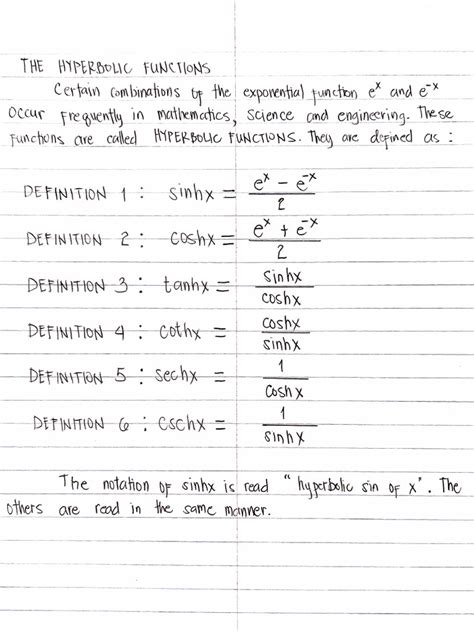 THE HYPERBOLIC FUNCTIONS
Certain combinations of the exponential function e^x and e^-x
occur frequently in mathematics, science and engineering. These
functions are called HYPERBOLIC FUNCTIONS. They are defined as :
DEFINITION 1 : sinhx = (e^x - e^-x)/2
DEFINITION 2 : coshx = (e^x + e^-x)/2
DEFINITION 3 : tanhx = sinhx/coshx
DEFINITION 4 : cothx = coshx/sinhx
DEFINITION 5 : sechx = 1/coshx
DEFINITION 6 : cschx = 1/sinhx
The notation of sinhx is read "hyperbolic sin of x". The
others are read in the same manner.